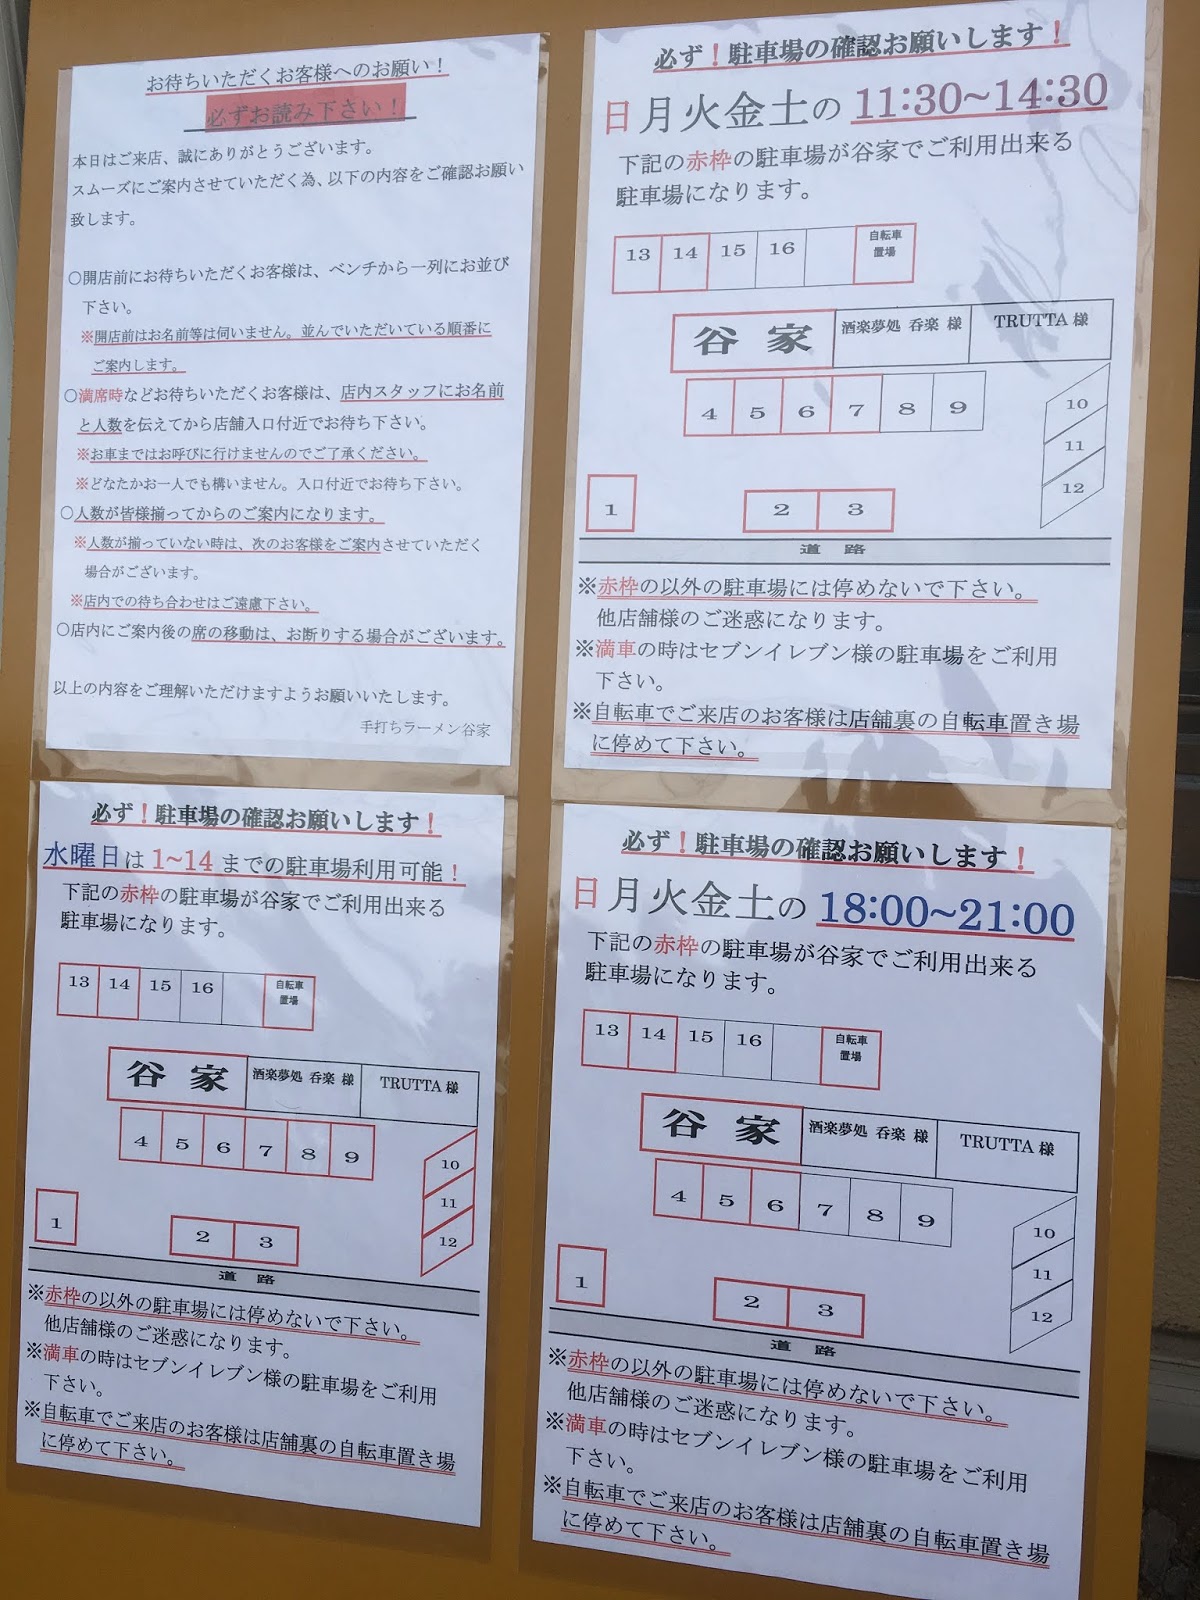 お待ちいただくお客様へのお願い！
必ずお読み下さい！
本日はご来店、誠にありがとうございます。
スムーズにご案内させていただく為、以下の内容をご確認お願い
致します。
○開店前にお待ちいただくお客様は、ベンチから一列にお並び
下さい。
※開店前はお名前等は伺いません。並んでいただいている順番に
ご案内します。
○満席時などお待ちいただくお客様は、店内スタッフにお名前
と人数を伝えてから店舗入口付近でお待ち下さい。
※お車まではお呼びに行けませんのでご了承ください。
※どなたかお一人でも構いません。入口付近でお待ち下さい。
○人数が皆様揃ってからのご案内になります。
※人数が揃っていない時は、次のお客様をご案内させていただく
場合がございます。
※店内での待ち合わせはご遠慮下さい。
○店内にご案内後の席の移動は、お断りする場合がございます。
以上の内容をご理解いただけますようお願いいたします。
手打ちラーメン谷家
必ず！駐車場の確認お願いします！
日月火金土の 11:30~14:30
下記の赤枠の駐車場が谷家でご利用出来る
駐車場になります。
13 14 15 16 自転車
置場
谷 家 酒楽夢処 呑楽 様 TRUTTA 様
4 5 6 7 8 9
10
11
12
1 2 3
道 路
※赤枠の以外の駐車場には停めないで下さい。
他店舗様のご迷惑になります。
※満車の時はセブンイレブン様の駐車場をご利用
下さい。
※自転車でご来店のお客様は店舗裏の自転車置き場
に停めて下さい。
必ず！駐車場の確認お願いします！
水曜日は 1~14 までの駐車場利用可能！
下記の赤枠の駐車場が谷家でご利用出来る
駐車場になります。
13 14 15 16 自転車
置場
谷 家 酒楽夢処 呑楽 様 TRUTTA 様
4 5 6 7 8 9
10
11
12
1 2 3
道 路
※赤枠の以外の駐車場には停めないで下さい。
他店舗様のご迷惑になります。
※満車の時はセブンイレブン様の駐車場をご利用
下さい。
※自転車でご来店のお客様は店舗裏の自転車置き場
に停めて下さい。
必ず！駐車場の確認お願いします！
日月火金土の 18:00~21:00
下記の赤枠の駐車場が谷家でご利用出来る
駐車場になります。
13 14 15 16 自転車
置場
谷 家 酒楽夢処 呑楽 様 TRUTTA 様
4 5 6 7 8 9
10
11
12
1 2 3
道 路
※赤枠の以外の駐車場には停めないで下さい。
他店舗様のご迷惑になります。
※満車の時はセブンイレブン様の駐車場をご利用
下さい。
※自転車でご来店のお客様は店舗裏の自転車置き場
に停めて下さい。